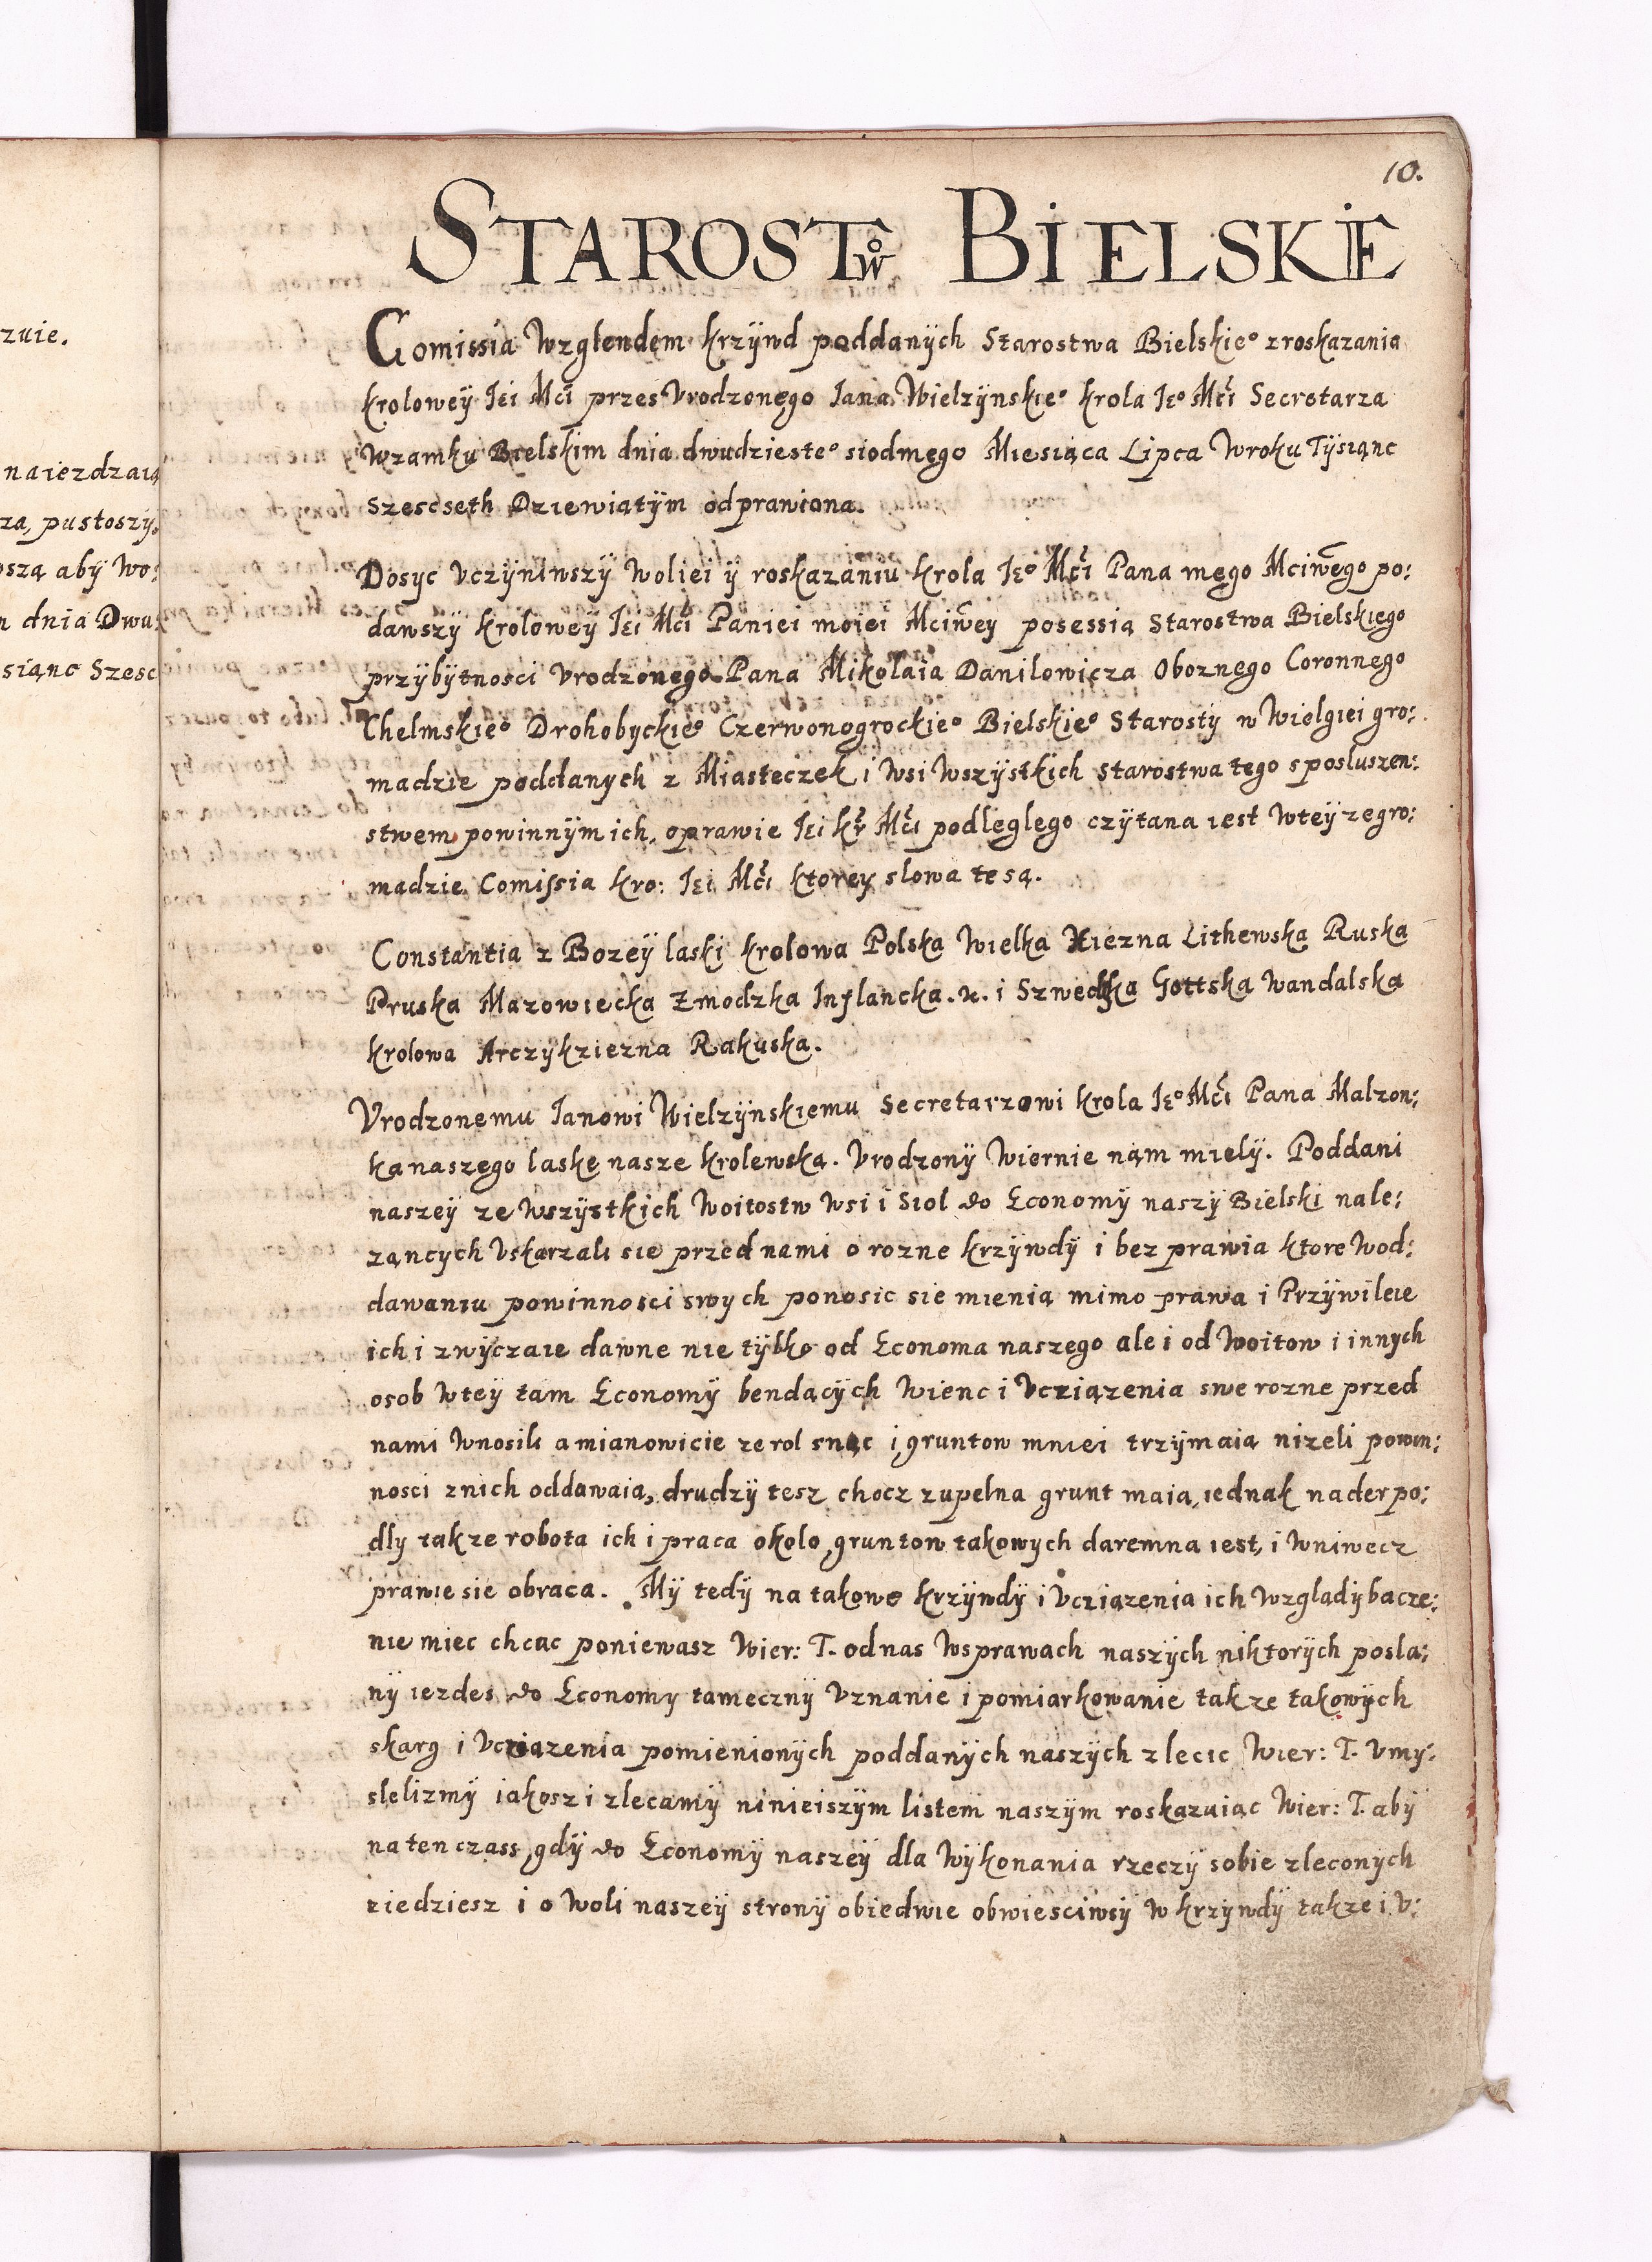 zuie.
naiezdzaią
za, pustoszy,
osza aby Wo:
n dnia Dwu:
siąnc Szesc
10.
STAROSTWo BIELSKIE
Comissia Wzglendem Krzÿwd poddanÿch Starostwa Bielskieº z roskazania
Krolowey Jei Mci przes Vrodzonego Jana Wielzÿnskieº Krola Jeº Mci Secretarza
W zamku Bielskim dnia dwudziesteº siodmego Miesiąca Lipca W roku Tÿsiąnc
Szescseth Dziewiatÿm odprawiona.
Dosyc Vczÿniwszÿ Woliei ÿ roskazaniu Krola Jeº Mci Pana mego Mciwego po:
dawszÿ Krolowey Jei Mci Paniei moiei Mciwey posessią Starostwa Bielskiego
przÿbÿtnosci Vrodzonego Pana Mikolaia Danilowicza Oboznego Coronnego
Chelmskieº Drohobyckieº Czerwonogrockieº Bielskieº Starosty w Wielgiei gro:
madzie poddanych z Miasteczek i Wsi Wszÿstkich Starostwa tego sposluszen:
stwem powinnÿm ich, oprawie Jei Kr Mci podleglego czÿtana iest Wteÿ zegro:
mądzie Comissia Kro: Jei Mci Ktorey slowa te są.
Constantia z Bozeÿ laski Krolowa Polska Wielka Xiezna Lithewska Ruska
Pruska Mazowiecka Zmodzka Inflancka. &. i Szwedska Gottska Wandalska
Krolowa Arczykziezna Rakuska.
Vrodzonemu Janowi Wielzÿnskiemu Secretarzowi Krola Jeº Mci Pana Malzon:
ka naszego laske nasze Krolewska. Vrodzonÿ Wiernie nąm milÿ. Poddani
naszeÿ ze Wszÿstkich Woitostw Wsi i Siol do Economÿ naszÿ Bielski nale:
ząncych Vskarzali sie przed nami o rozne Krzÿwdÿ i bez prawia Ktore Wod:
dawaniu powinnosci swych ponosic sie mienią mimo prawa i Przÿwileie
ich i zwÿczaie dawne nie tÿlko od Economa naszego ale i od Woitow i innych
osob Wteÿ tam Economÿ bendącÿch Wienc i Vcziązenia swe rozne przed
nami Wnosili a mianowicie ze rol snąc i gruntow mniei trzÿmaia nizeli powin:
nosci znich oddawaia, drudzÿ tesz chocz zupelna grunt maia, iednak nader po:
dly takze robota ich i praca okolo gruntow takowych daremna iest, i Wniwecz
prawie sie obraca. Mÿ tedÿ na takowe Krzÿwdÿ i Vcziazenia ich Wzgladÿ bacze:
nie miec chcac poniewasz Wier: T. od nas Wsprawach naszÿch niktorÿch posla:
nÿ iezdes do Economy tamecznÿ Vznanie i pomiarkowanie takze takowÿch
skarg i Vcziazenia pomienionÿch poddanÿch naszÿch zlecic Wier: T. Vmÿ:
slelizmÿ iakosz i zlecamÿ ninieiszÿm listem naszÿm roskazuiac Wier: T. abÿ
na ten czass, gdÿ do Economÿ naszeÿ dla Wÿkonania rzeczÿ sobie zleconych
ziedziesz i o Woli naszeÿ stronÿ obiedwie obwiesciwsÿ W krzÿwdÿ takze i V: